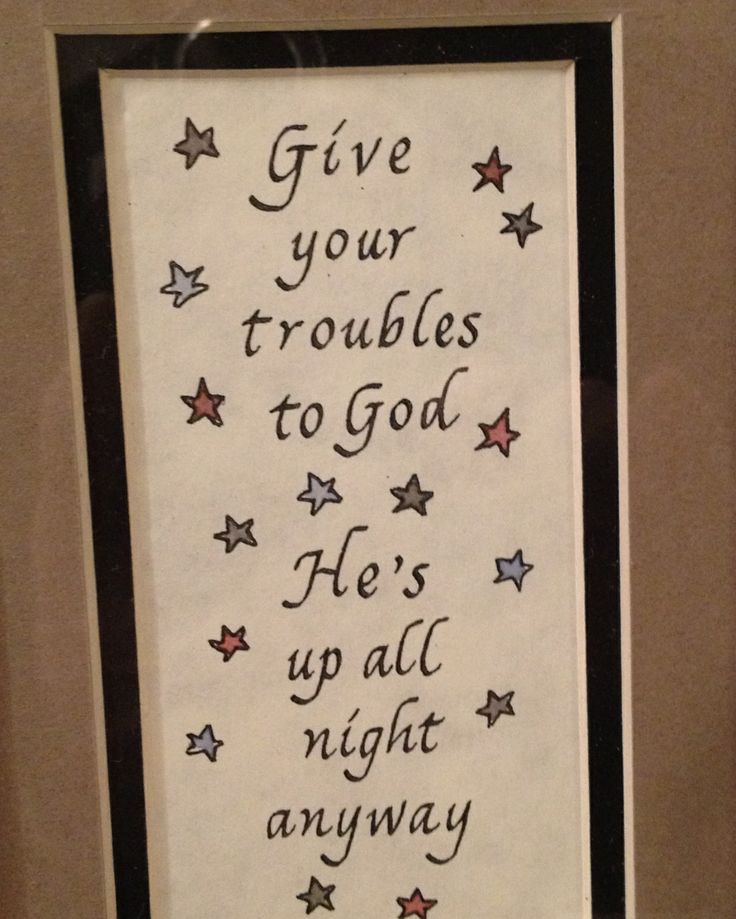 Give
your
troubles
to God
He's
up all
night
anyway